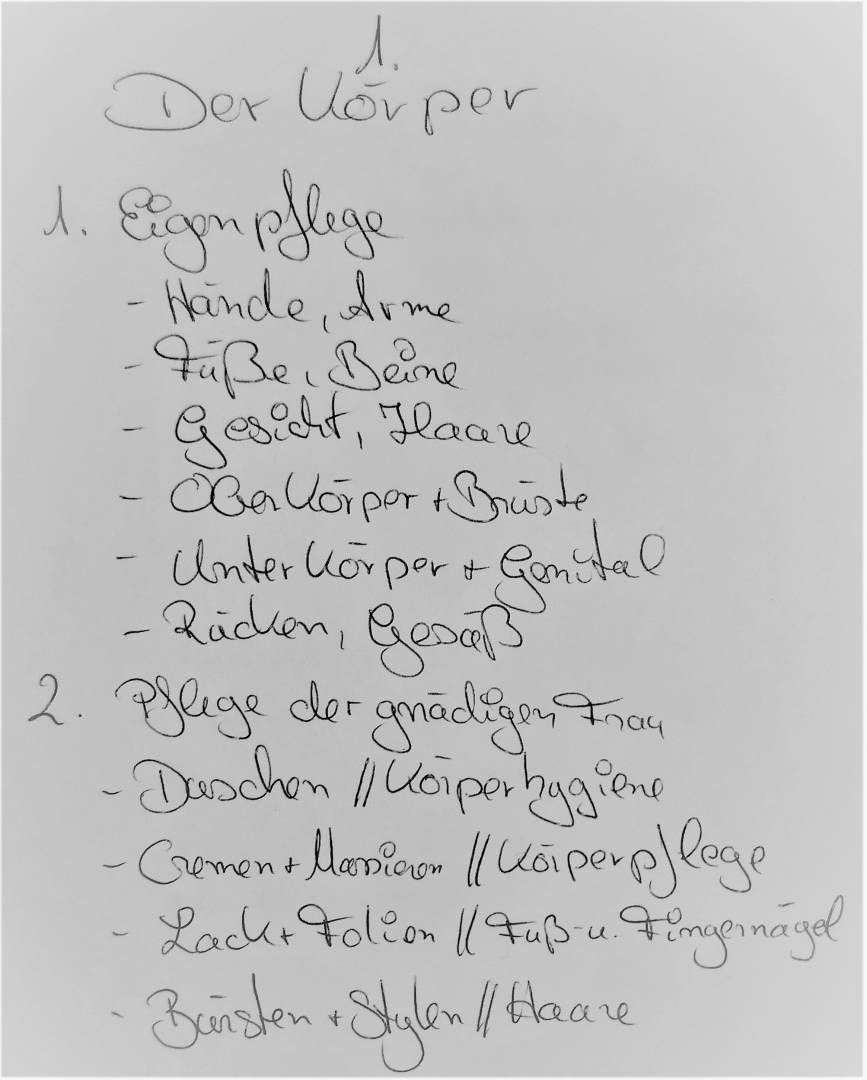 1.
Der Körper
1. Eigenpflege
- Hände, Arme
- Füße, Beine
- Gesicht, Haare
- Oberkörper + Brüste
- Unterkörper + Genital
- Rücken, Gesäß
2. Pflege der gnädigen Frau
- Duschen // Körperhygiene
- Cremen + Massieren // Körperpflege
- Lack + Folien // Fuß- u. Fingernägel
- Bürsten + Stylen // Haare